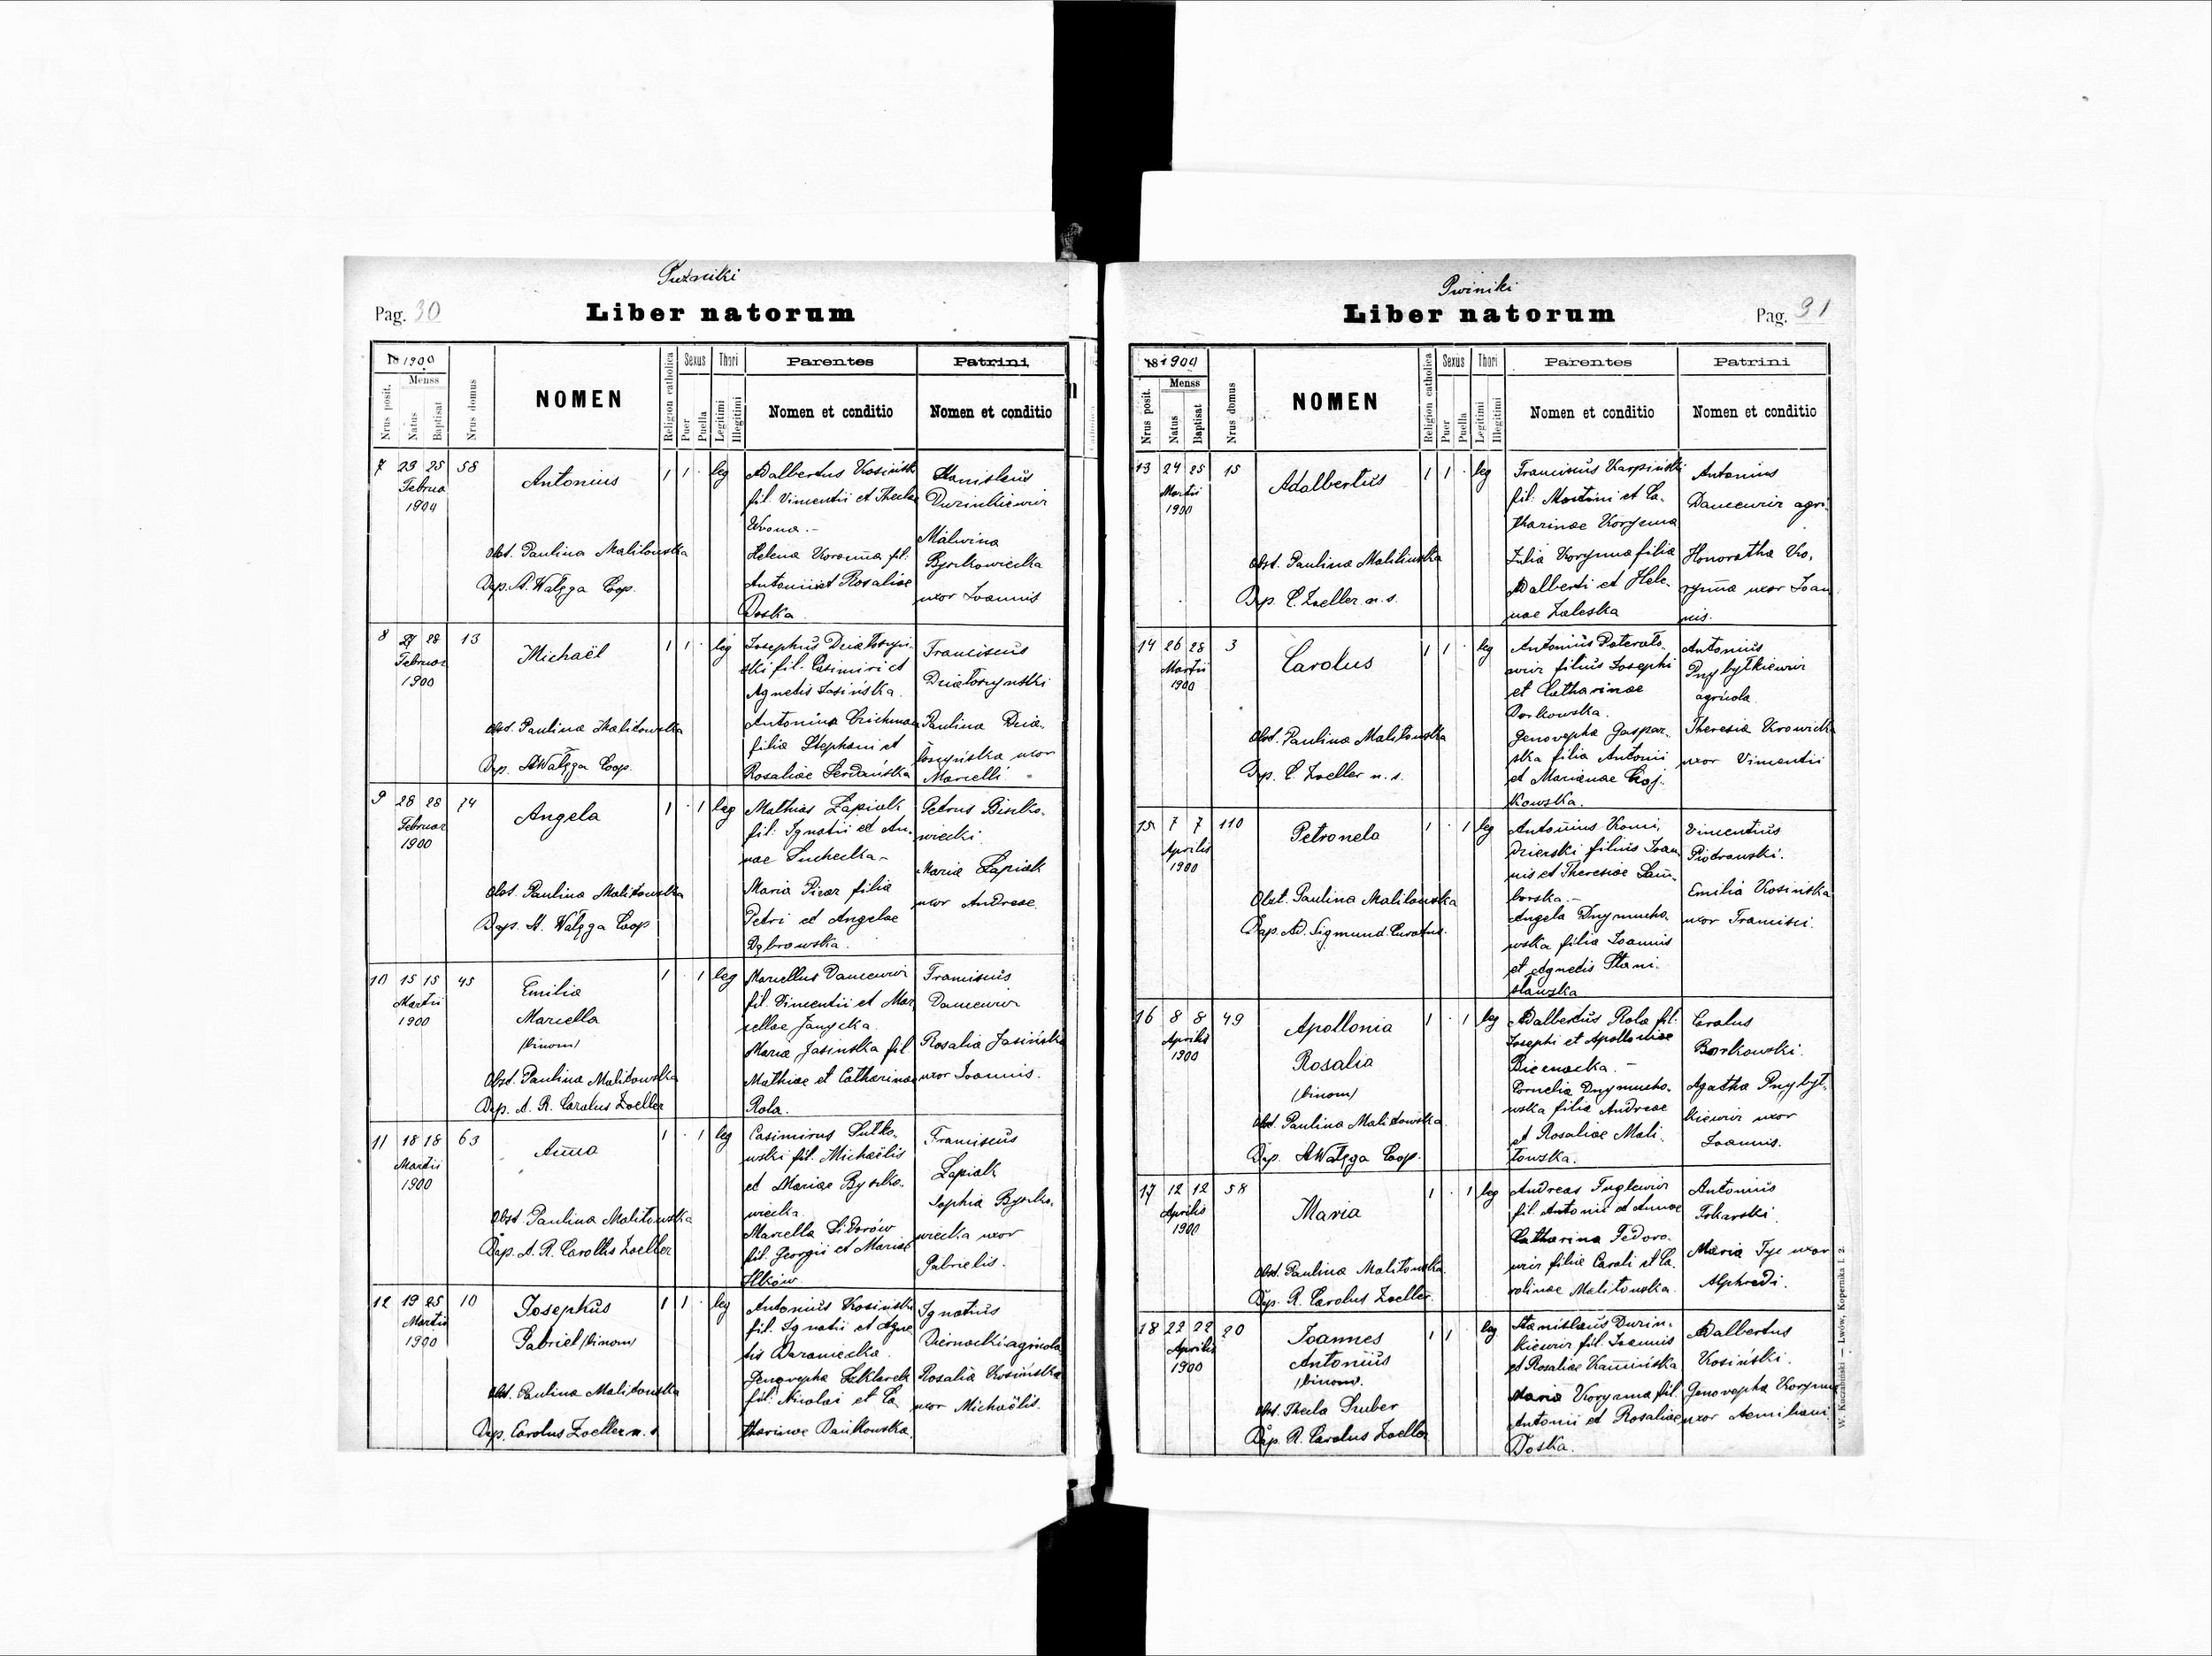 Puźniki
Pag. 30
Liber natorum
18 1900
Menss
Nrus posit.
Natus
Baptisat
Nrus domus
NOMEN
Religion catholica
Sexus
Puer
Puella
Thori
Legitimi
Illegitimi
Parentes
Nomen et conditio
Patrini
Nomen et conditio
7 23 25 58 Antonius 1 1 · leg
Februar
1900
Obst. Paulina Malitowska
Bap. A. Wałęga Coop.
Adalbertus Kosiński
fil. Vincentii et Theclae
Wrona.-
Helena Koryzma fil.
Antonii et Rosaliae
Doska
Stanislaus
Durinkiewicz
Malwina
Byczkowiecka
uxor Ioannis
8 27 28 13 Michaël 1 1 · leg
Februar
1900
Obst. Paulina Malitowska
Bap. A Wałęga Coop.
Josephus Działoszyń-
ski fil. Casimiri et
Agnetis Jasińska.
Antonina
filia Stephani et
Rosaliae
Franciscus
Działoszyński
Paulina Dzia-
łoszyńska uxor
Marcelli
9 28 28 74 Angela 1 · 1 leg
Februar
1900
Obst. Paulina Malitowska
Bap. A. Wałęga Coop
Mathias Łapiak
fil. Ignatii et An-
nae Suchecka -
Maria filia
Petri et Angelae
Dąbrowska.
Petrus
wiecki.
Maria Łapiak
uxor Andreae.
10 15 15 45 Emilia 1 · 1 leg
Martii
1900
Marcella
(binom)
Obst. Paulina Malitowska
Bap. A. R. Carolus Zoeller
Marcellus Dancewicz
fil. Vincentii et Mar
cellae
Maria Jasinska fil.
Mathiae et Catharinae
Rola.
Franciscus
Dancewicz
Rosalia Jasińska
uxor Ioannis.
11 18 18 63 Anna 1 · 1 leg
Martii
1900
Obst. Paulina Malitowska
Bap. A. R. Carolus Zoeller
Casimirus Sutko-
wski fil. Michaëlis
et Mariae Byczko-
wiecka
Marcella Sidorów
fil. Georgii et Mariae
Ilków.
Franciscus
Łapiak
Sophia Byczko-
wiecka uxor
Gabrielis.
12 19 25 10 Josephus 1 1 · leg
Martii
1900
Gabriel (binom)
Obst. Paulina Malitowska
Bap. Carolus Zoeller n. s
Antonius Kosiński
fil. Ignatii et Agne
tis
Genovepha Szklarek
fil. Nicolai et Ca
tharinae
Ignatius
Biernacki agricola
Rosalia Kosińska
uxor Michaëlis.
Pag. 31
Liber natorum
18 1900
Menss
Nrus posit.
Natus
Baptisat
Nrus domus
NOMEN
Religion catholica
Sexus
Puer
Puella
Thori
Legitimi
Illegitimi
Parentes
Nomen et conditio
Patrini
Nomen et conditio
13 24 25 15 Adalbertus 1 1 · leg
Martii
1900
Obst. Paulina Malitowska
Bap. C. Zoeller n. s.
Franciscus Karpiński
fil. Martini et Ca-
tharinae Koryzma
Julia Koryzma filia
Adalberti et Hele-
nae Zaleska
Antonius
Dancewicz agri.
Honoratha Ko-
ryzma uxor Joan
nis.
14 26 28 3 Carolus 1 1 · leg
Martii
1900
Obst. Paulina Malitowska
Bap. C. Zoeller n. s.
Antonius
filius Josephi
et Catharinae
Borkowska.
Genovepha Gaspar-
ska filia Antonii
et Marianae
kowska.
Antonius
Przybytkiewicz
agricola.
Theresia Krowicka
uxor Vincentii
15 7 7 110 Petronela 1 · 1 leg
Aprilis
1900
Obst. Paulina Malitowska
Bap. Ad. Sigmund. Curatus.
Antonius
filius Joan
nis et Theresiae Sam-
borska.-
Angela Drymucho
wska filia Ioannis
et Agnetis Stani-
sławska
Vincentius
Piotrowski.
Emilia Kosińska
uxor Francisci.
16 8 8 49 Apollonia 1 · 1 leg
Aprilis
1900
Rosalia
(binom)
Obst. Paulina Malitowska
Bap. A Wałęga Coop.
Adalbertus Rola fil.
Josephi et Apolloniae
Biernacka.-
Cornelia Drymucho-
wska filia Andreae
et Rosaliae Mali-
towska.
Carolus
Borkowski.
Agatha Przybyt-
kiewicz uxor
Ioannis.
17 12 12 58 Maria 1 · 1 leg
Aprilis
1900
Obst. Paulina Malitowska
Bap. R. Carolus Zoeller.
Andreas
fil. Antonii et Annae
Catharina Fedoro-
wicz filia Caroli et Ca-
rolinae Malitowska.
Antonius
Tokarski.
Maria Tyc uxor
Alphredi.
18 22 22 20 Joannes 1 1 leg
Aprilis
1900
Antonius
(binom.
Obst. Thecla Gruber
Bap. R. Carolus Zoeller
Stanislaus Durin-
kiewicz fil. Ioannis
et Rosaliae Kamińska
Maria Koryzma fil.
Antonii et Rosaliae
Doska.
Adalbertus
Kosiński.
Genovepha Koryzma
uxor Aemiliani
W. Kuczabiński — Lwów, Kopernika l. 2